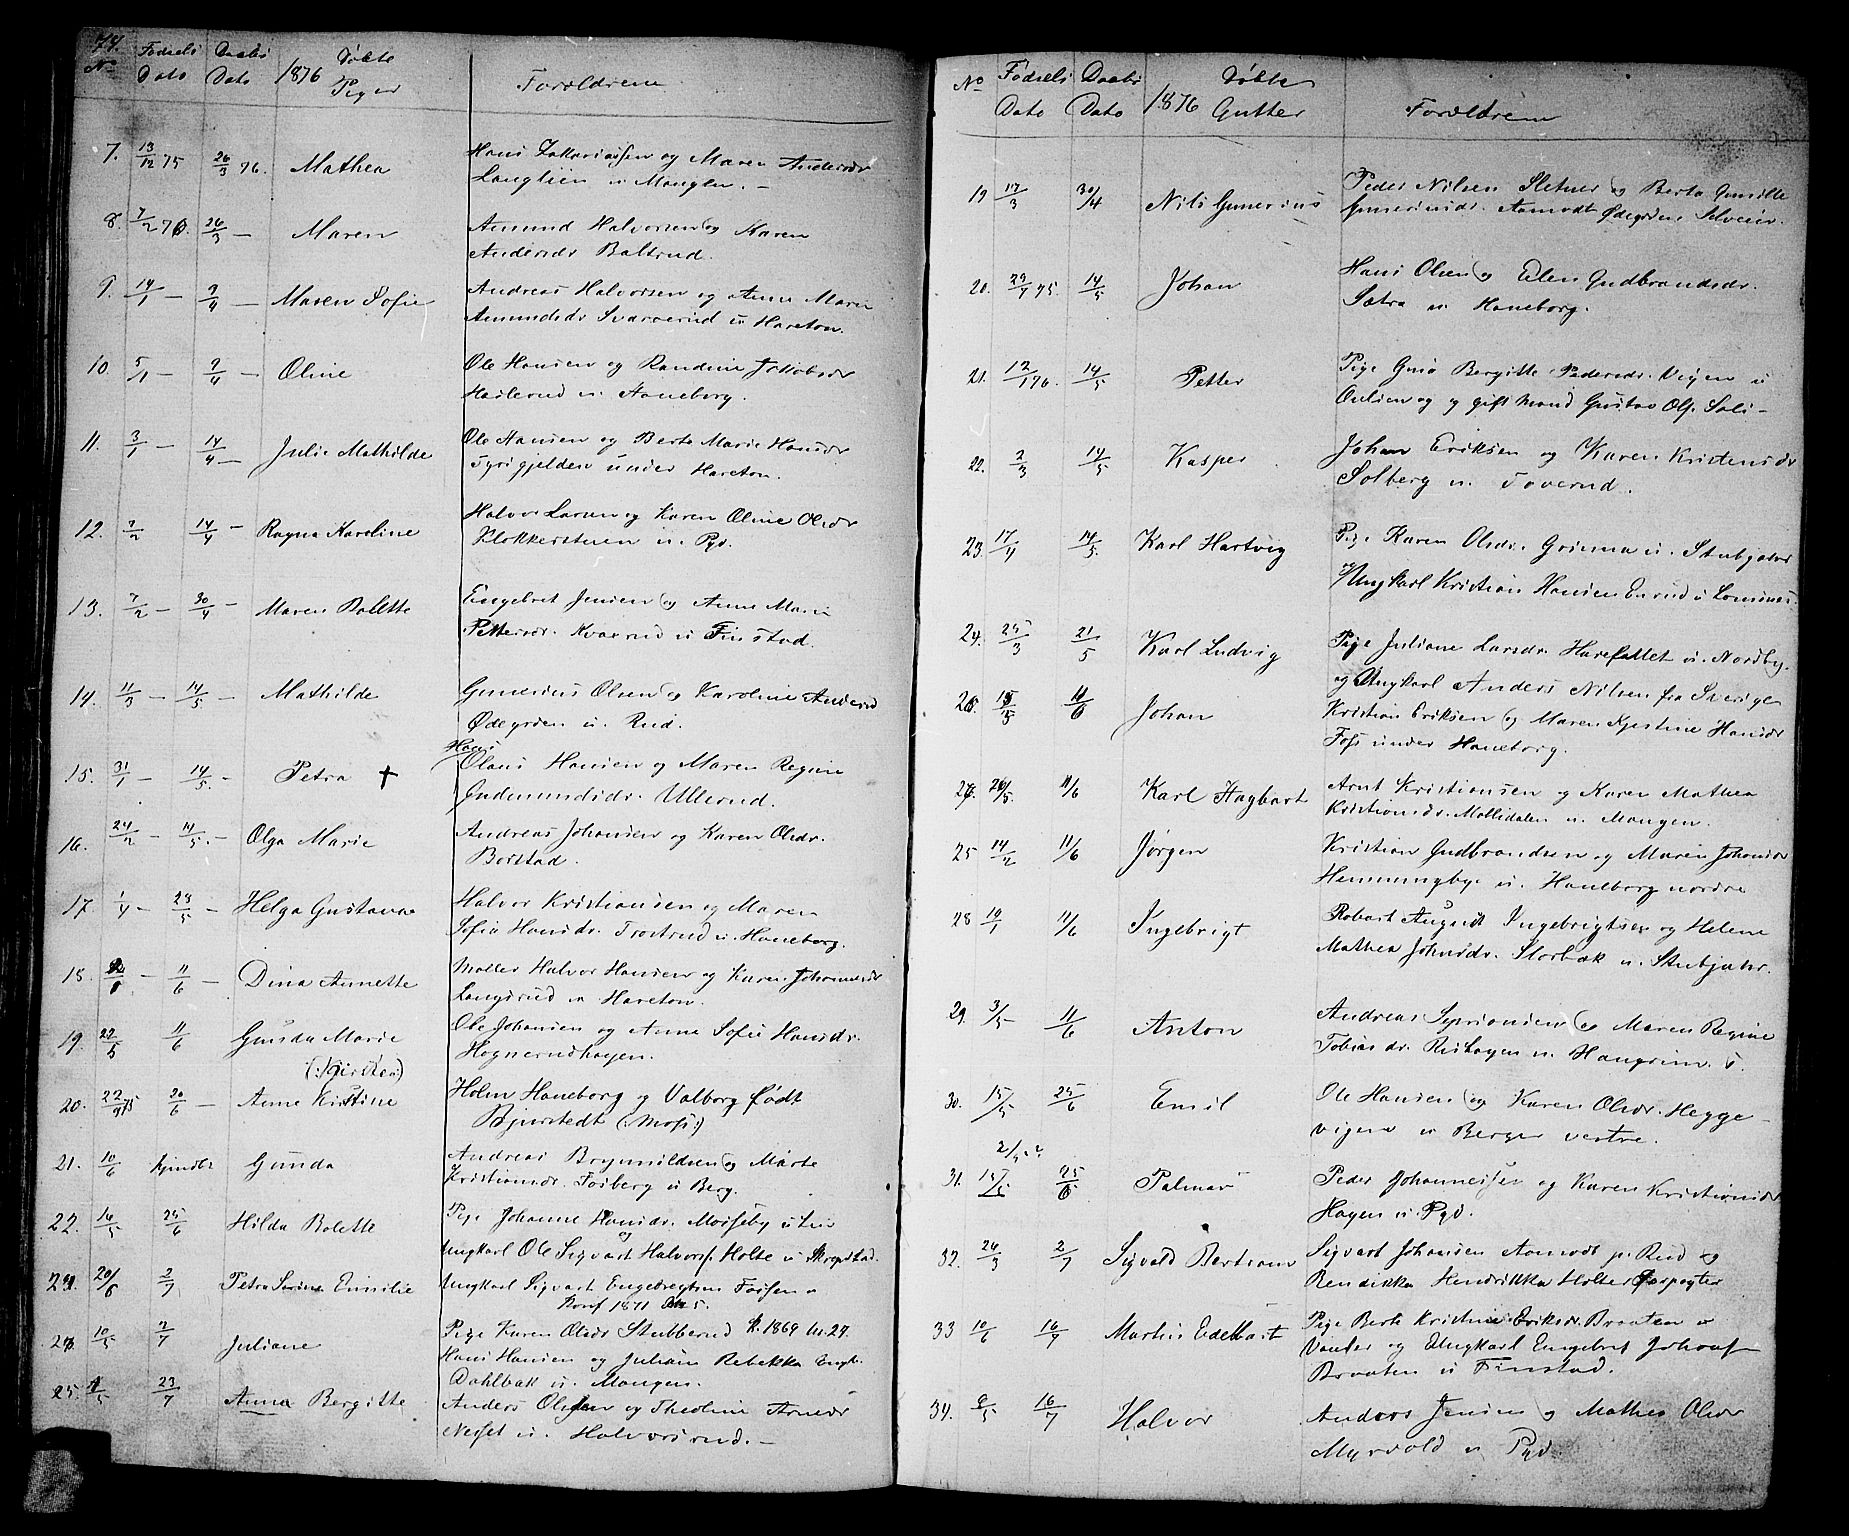 74.
No Fødsels Daabs 1876 Døbte Forældrene
Dato Dato Piger
7. 13/12 75 26/3 76. Mathea Hans Zakariassen og Maren Andersdr
Langlien u Mangen. -
8. 7/2 76. 26/3 - Maren Amund Halvorsen og Karen
Andersdr Baltrud.
9. 14/1 - 9/4 - Maren Sofie Andreas Halvorsen og Anne Marie
Amundsdr Svarverud u Hareton.
10. 5/1 - 9/4 - Oline Ole Hansen og Randine Jakobsdr
u. Haneborg.
11. 3/1 - 14/4 - Julie Mathilde Ole Hansen og Berte Marie Hansdr
Tyrigjelden under Hareton.
12. 7/2 14/4 - Ragna Karoline Halvor Larsen og Karen Oline Olsdr
Klokkerstuen u. Pyd.
13. 7/2 - 30/4 - Maren Bolette Engebret Jensen og Anne Marie
Pettersdr. Kvaerud u Finstad.
14. 11/3 - 14/5 - Mathilde Gunerius Olsen og Karoline Andersd
Ødegården u. Rud.
Hans
15. 31/1 - 14/5. - Petra + Olaus Hansen og Maren Regine
Gudmundsdr. Ullerud.
16. 24/2 - 14/5. - Olga Marie Andreas Johansen og Karen Olsdr.
Borstad.
17. 1/4 - 28/5 - Helga Gustava Halvor Kristiansen og Maren
Sofie Hansdr. Trostrud u. Haneborg.
18. - 11/6 - Dina Annette Møller Halvor Hansen og Karen Johannesdr
Langsrud u Hareton.
19. 27/5 11/6 Gunda Marie Ole Johansen og Anne Sofie Hansdr.
Hognerudhagen.
(:Kirsten:)
20. 22/9 75 20/6 - Anne Kristine Holm Haneborg og Valborg født
Bjerstedt (:Moss:)
21. 10/6 Gunda Andreas Brynnildsen og Marte
Kristiansdr. Fosberg u Berg.
22. 16/5 25/6 Hilda Bolette Pige Johanne Hansdr. Moseby u
og
Ungkarl Ole Sigvart Halvors: Holte u Skrepstad.
24. 20/6 2/7 Petra Serine Emilie Ungkarl Sigvart Engebregtsen Fossen u
Konf 1871 No 5.
Pige Karen Olsdr Stubberud K. 1869 No. 27.
10/5 2/7 Juliane Hans Hansen og Juliane Rebekka Engb.
Dahlbak u. Mangen.
25. 4/5 23/7 Anna Bergitte Anders Olsen og Theoline Arnesdr
Neset u. Halvorsrud. -
No Fødsels Daabs 1876 Døbte Forældrene
Dato Dato Gutter
19 17/3 30/4 Nils Gunerius Peder Nilsen Sletner og Berte Gunille
Guneriusdr. Aamodt Ødegården
20. 29/7 75. 14/5 Johan Hans Olsen og Elen Gudbrandsdr.
Sætra u Haneborg.
21. 12/1 76. 14/5 Petter Pige Gina Bergitte Pedersdr. Vigen u
Aulien og g gift Mand Gustav Ols. Sali-
22. 2/3 14/5 Kasper Johan Eriksen og Karen Kristensdr
Solberg u. Toverud.
23. 17/4 14/5 Karl Hartvig Pige Karen Olsdr. Grinna u. Stubjahr
Ungkarl Kristian Hansen Enrud u Lomsnes.
24. 25/3 21/5 Karl Ludvig Pige Juliane Larsdr. Harefallet u. Nordby.
og Ungkarl Anders Nilsen fra Sverige
26. 15/5 11/6 Johan Kristian Eriksen og Maren Kjerstine Hansdr
Foss under Haneborg.
27. 20/5. 11/6 Karl Hagbart Arnt Kristiansen og Karen Mathea
Kristiansdr. Mollidalen u. Mangen.
25 14/2 11/6 Jørgen Kristian Gudbrandsen og Maren Johansdr
Hemmingbye u. Haneborg nordre
28 19/1 11/6 Ingebrigt Robart August Ingebrigtsen og Helene
Mathea Johnsdr. Storbæk u. Stubjahr.
29. 3/5 - 11/6 Anton Andreas Syriansen og Maren Regine
Tobiasdr. Rishagen u. Hangrim. s.
30. 15/5 25/6 Emil Ole Hansen og Karen Olsdr. Hegge-
vigen u Berger vestre.
2/5 ?
31. 15/5 25/6 Palmar Peder Johannessen og Karen Kristiansdr
Hagen u. Pyd.
32. 26/3 2/7 Sigvald Bertram Sigvart Johansen Aamodt p. Rud og
Bendikka Hendrikka Holter
33 10/6 16/7 Martin Edelbart Pige Berte Kristine Eriksdr. Braaten u
Vanter og Ungkarl Engebret Johans:
Braaten u Finstad.
34. 6/5 16/7 Halvor Anders Jensen og Mathea Olsdr
Myrvold u Pyd.